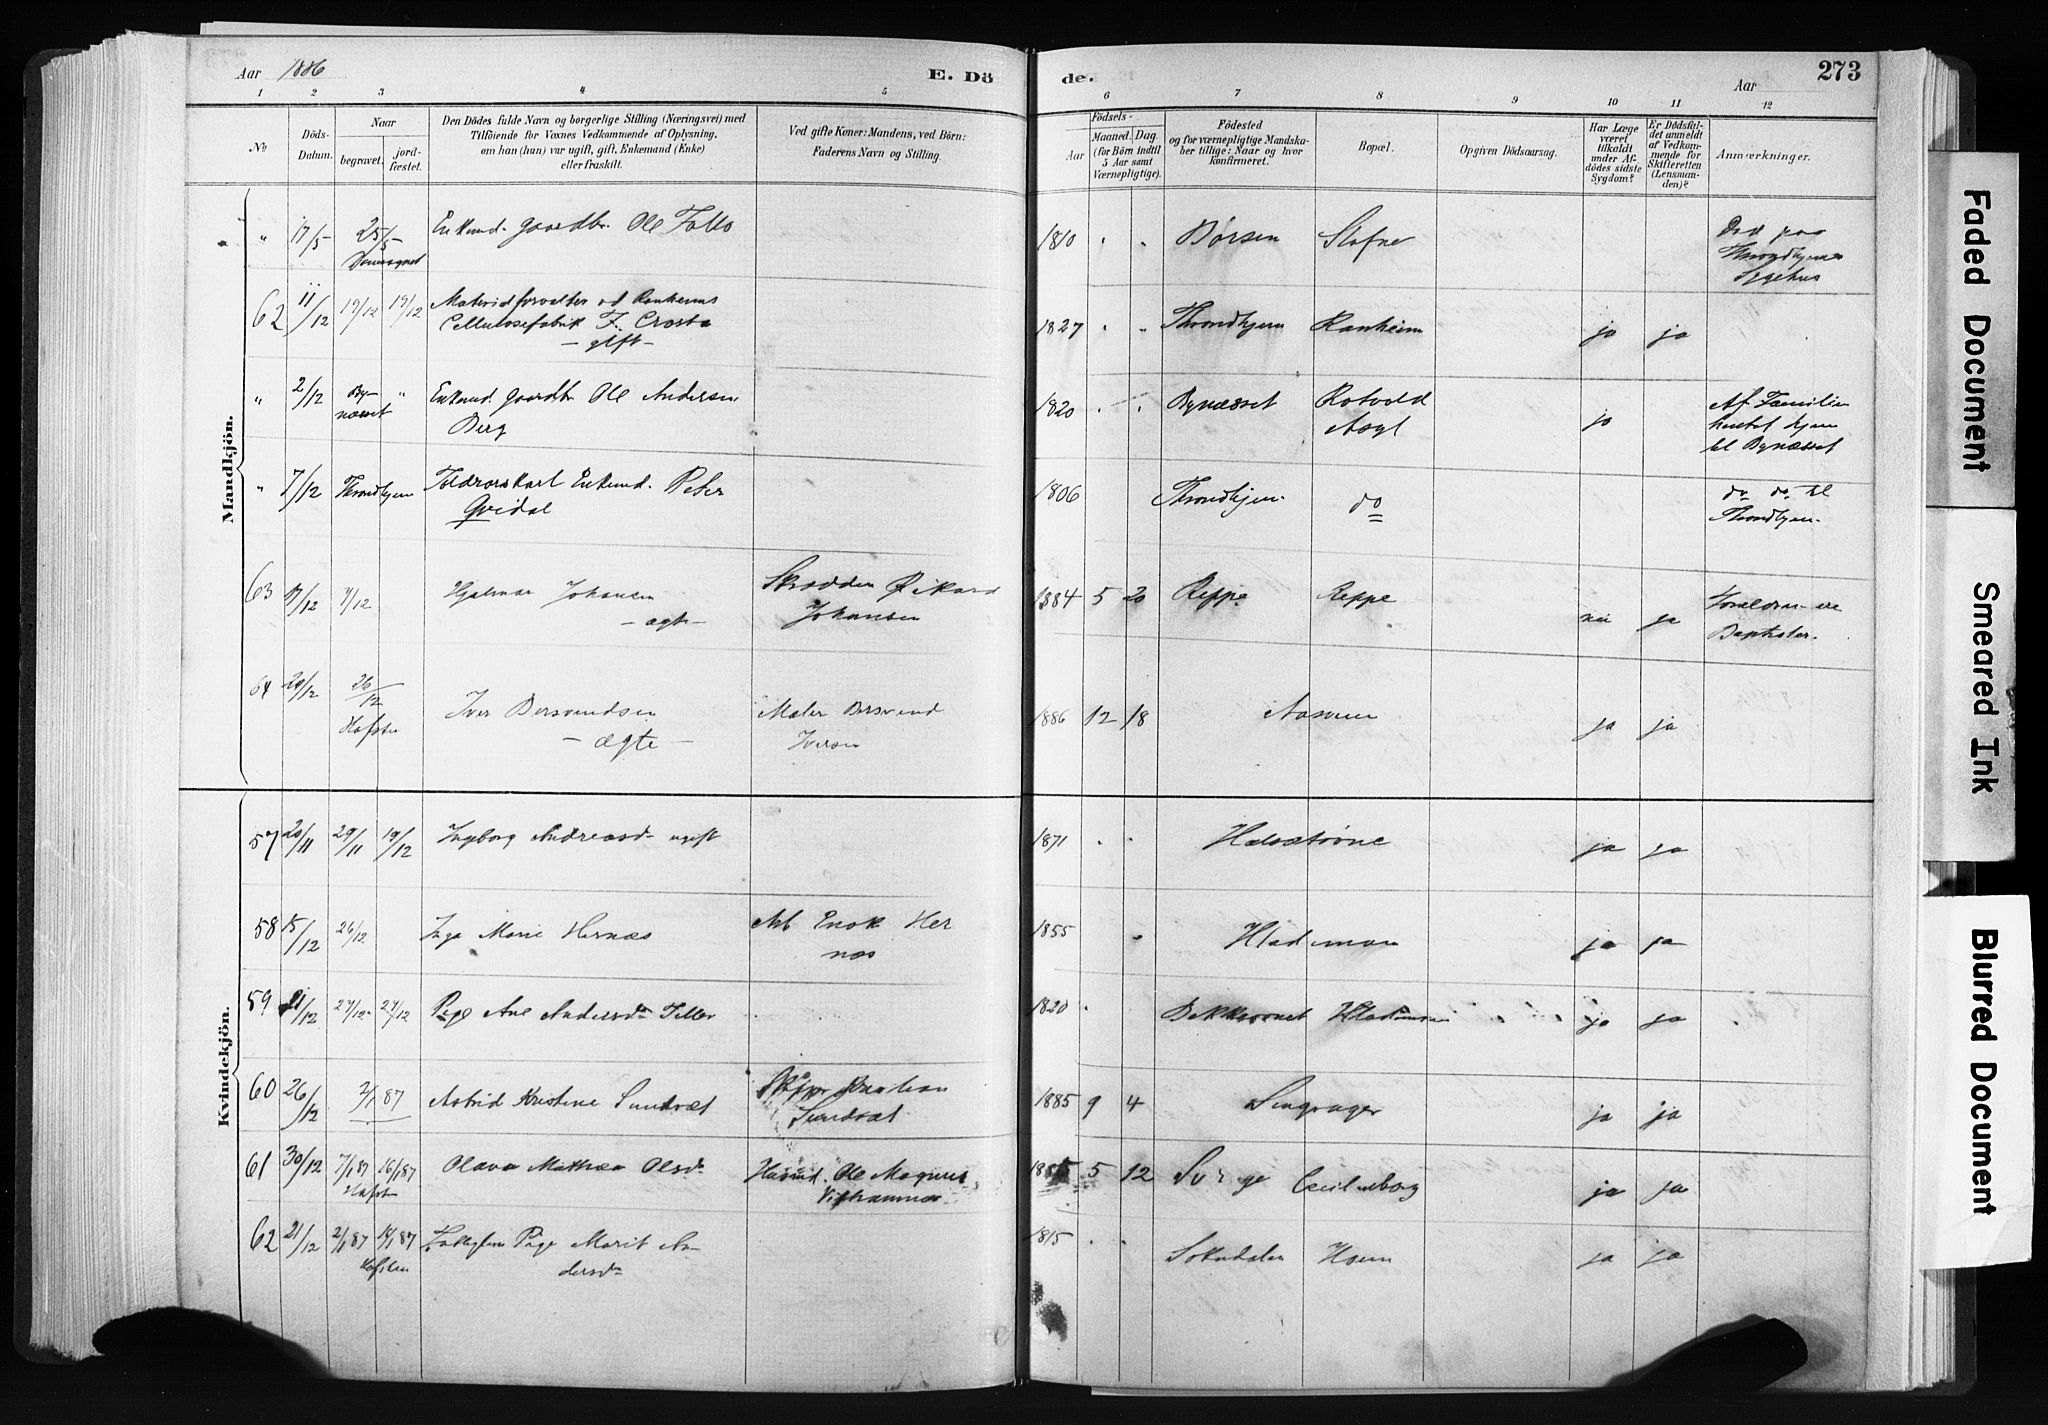 Aar 1886
E. Dö
de.
Aar
273
1 2 3 4 5 6 7 8 9 10 11 12
No
Döds-Datum.
Naar
begravet.
jord-fæstet.
Den Dödes fulde Navn og borgerlige Stilling (Næringsvei) med
Tilföiende for Voxnes Vedkommende af Oplysning,
om han (hun) var ugift, gift, Enkemand (Enke)
eller fraskilt.
Ved gifte Koner: Mandens, ved Börn:
Faderens Navn og Stilling.
Födsels-
Aar
Maaned. Dag.
(for Börn indtil
5 Aar samt
Værnepligtige).
Födested
og for værnepligtige Mandska-
ber tillige: Naar og hvor
konfirmeret.
Bopæl.
Opgiven Dödsaarsag.
Har Læge
været
tilkaldt
under Af-
dödes sidste
Sygdom?
Er Dödsfal-
det anmeldt
af Vedkom-
mende for
Skifteretten
(Lensman-
den)?
Anmærkninger.
Mandkjön.
" 17/5 25/5 Enkemd. Gaardbr. Ole Follo 1810 " " Börsen Stafne Död paa
Throndhjems
Sygehus
62 11/12 19/12 19/12 Materialforvalter ved Ranheims
Cellulosefabrik F. Crosta
- gift -
1827 " " Throndhjem Ranheim ja ja
" 2/12 By-
næsset " Enkemd. Gaardbr. Ole Andersen
Berg
1820 " " Bynæsset Rotvold
Asyl ja Af Familien
hentet hjem
til Bynæsset
" 7/12 Throndhjem Enkemd. Peter
Qvidal
1806 Throndhjem do do do til
Throndhjem.
63 17/12 Hjalmar Johansen
- ægte -
Skrædder Rikard
Johansen
1884 5 20 Reppe Reppe nei ja Forældrene ere
Baptister.
64 20/12 26/12
Hafstn Iver Bersvendsen
- ægte -
Maler Bersvend
Iversen
1886 12 18 ja ja
Kvindekjön.
57 20/11 29/11 19/12 Ingeborg Andreasdr ugift 1871 " " Halsetröne ja ja
58 15/12 26/12 Inga Marie Hernæs Arb Enok Her
næs
1855 " Hladmoen ja ja
59 21/12 27/12 27/12 Pige Ane Andersdr Tiller 1820 " Hladmoen ja ja
60 26/12 2/1 87 Astrid Kristine Sundsæt Sundsæt
1885 9 4 ja ja
61 30/12 7/1 87 16/1 87
Hafstn Olava Mathea Olsdr Husmd. Ole Magnus
Vikhammer
1885 5 12 Cecilienborg ja ja
62 21/12 2/1 87 16/1 87
Hafstn Pige Marit An
dersdr
1815 " " Soknedalen Hoem ja ja
Faded Document
Smeared Ink
Blurred Document